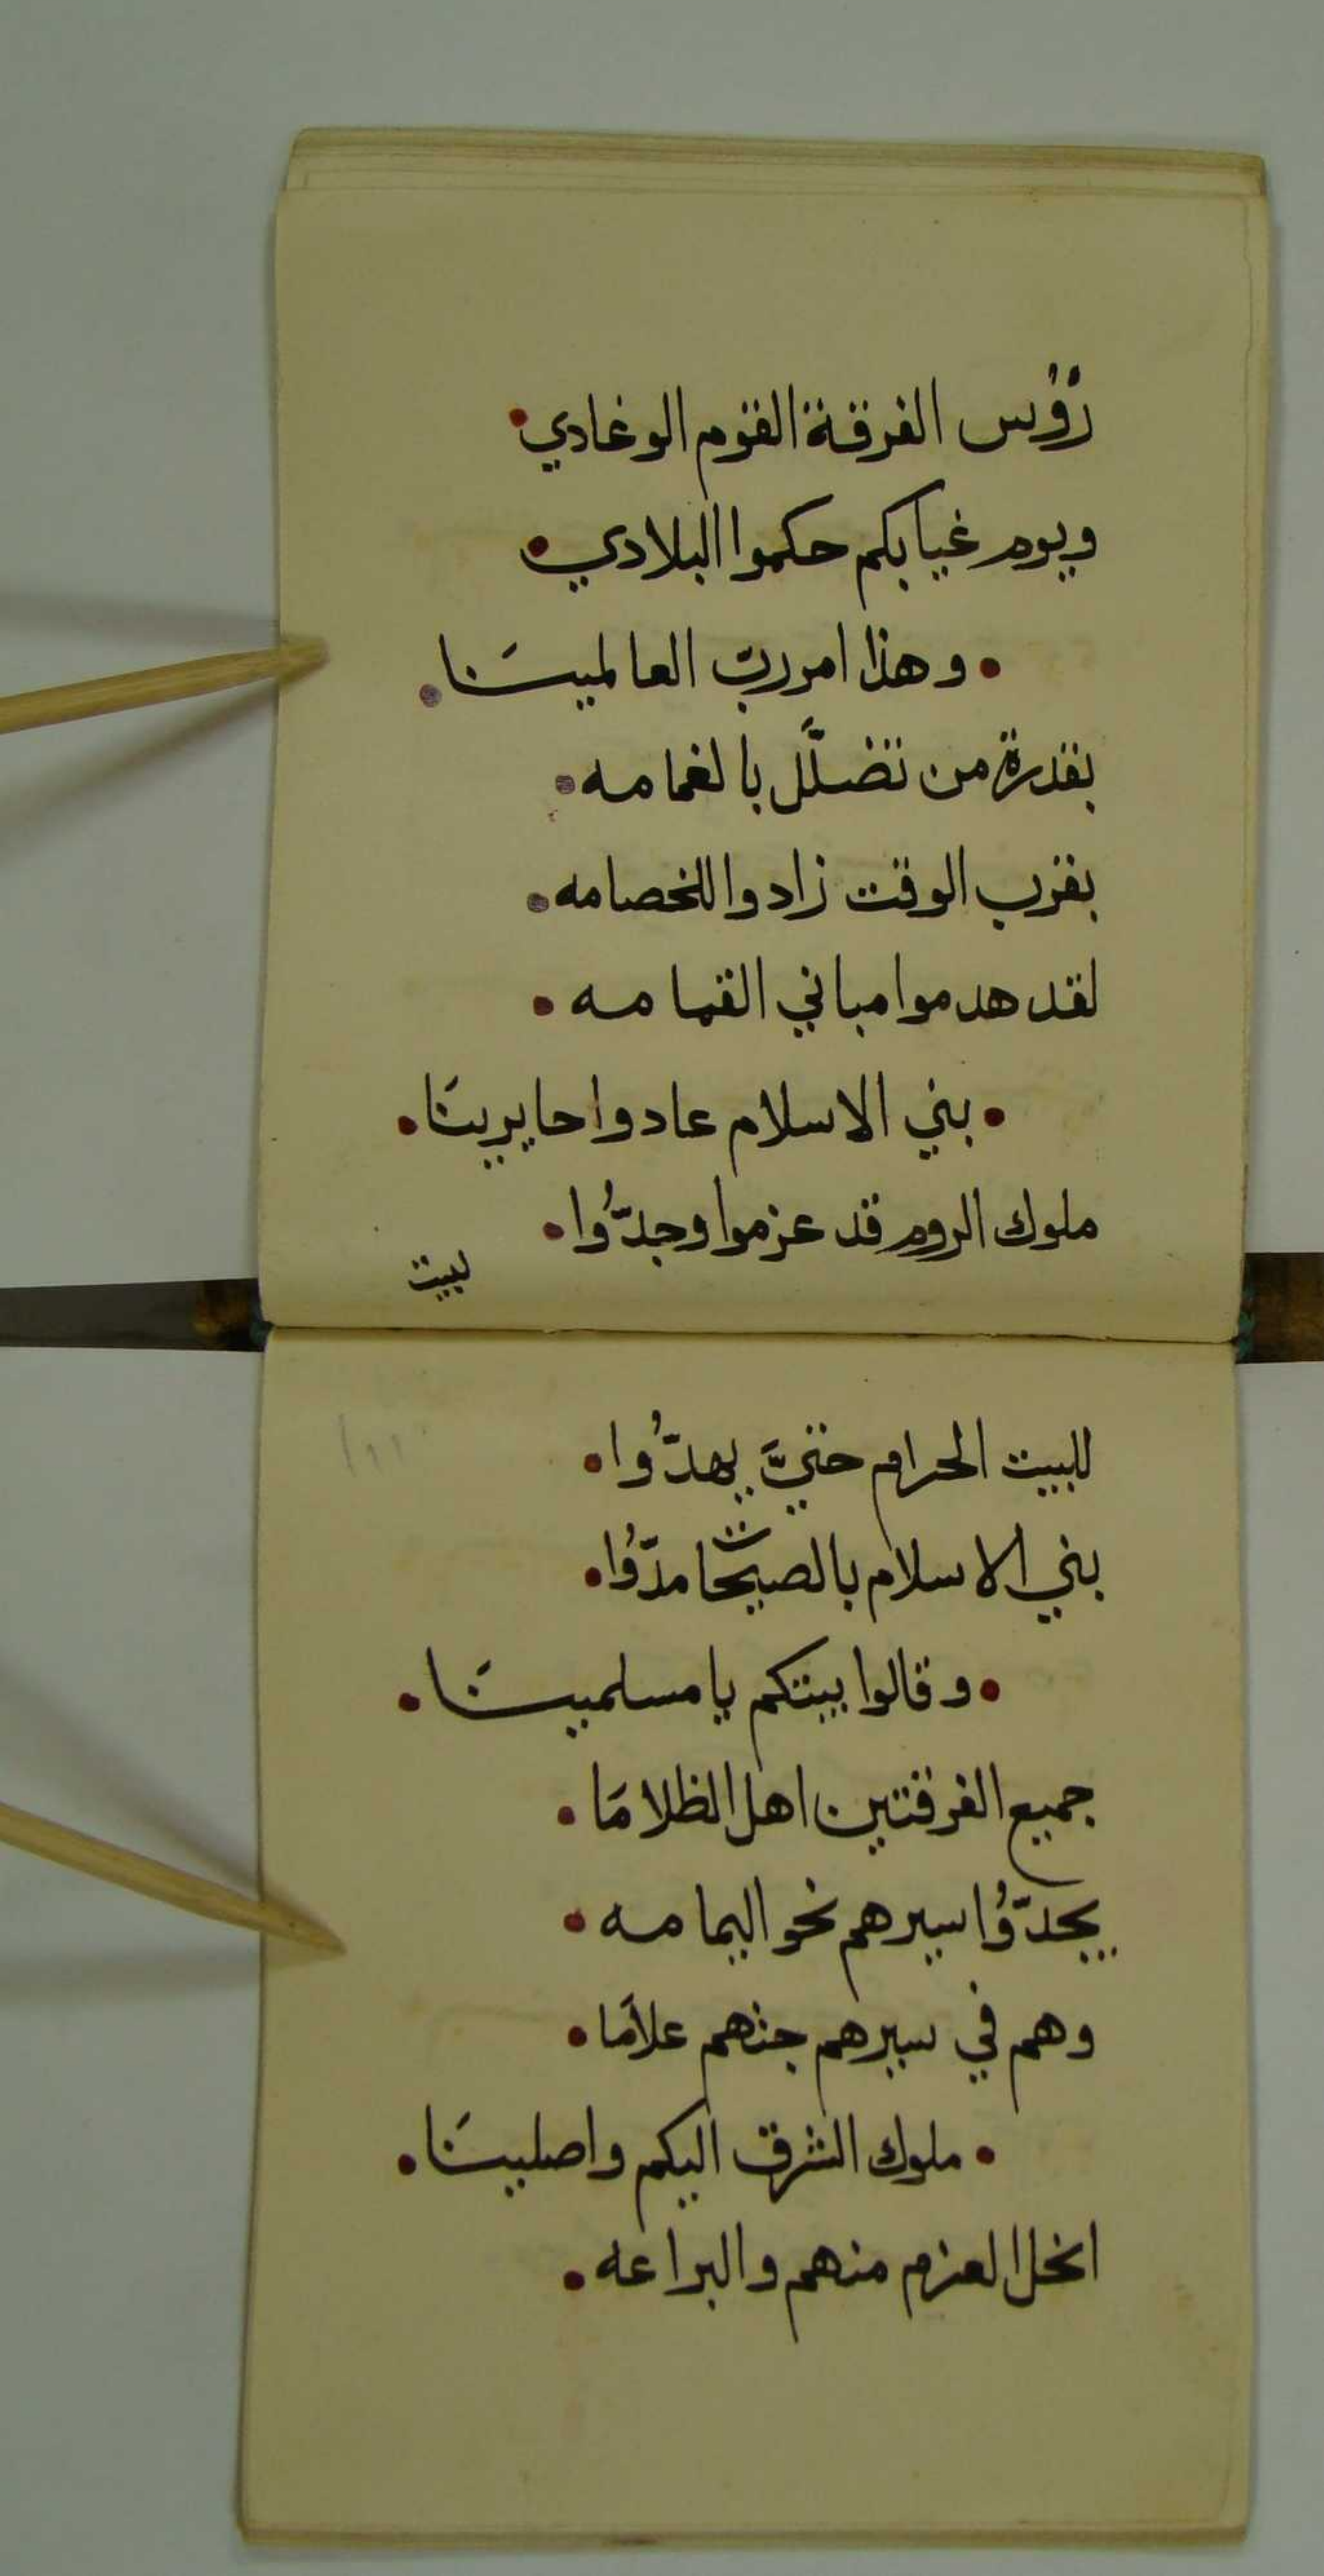 رُؤُس الفرقة القوم الوغادي
ويوم غيابكم حكموا البلادي
وهذا امر ربّ العالمينَا
بقدرة من تضلَّل بالغمامه
بقرب الوقت زادوا للخصامه
لقد هدموا مباني القمامه
بني الاسلام عادوا حايرينَا
ملوك الروم قد عزموا وجدّوُا
لبيت
للبيت الحرام حتيَّ يهدّوُا
بني الاسلام بالصيحات مدّوُا
وقالوا بيتكم يا مسلمينَا
جميع الفرقتين اهل الظلامَا
يجدّوُا سيرهم نحو اليمامه
وهم في سيرهم جتهم علامَا
ملوك الشرق اليكم واصلينَا
انحل العزم منهم والبراعه